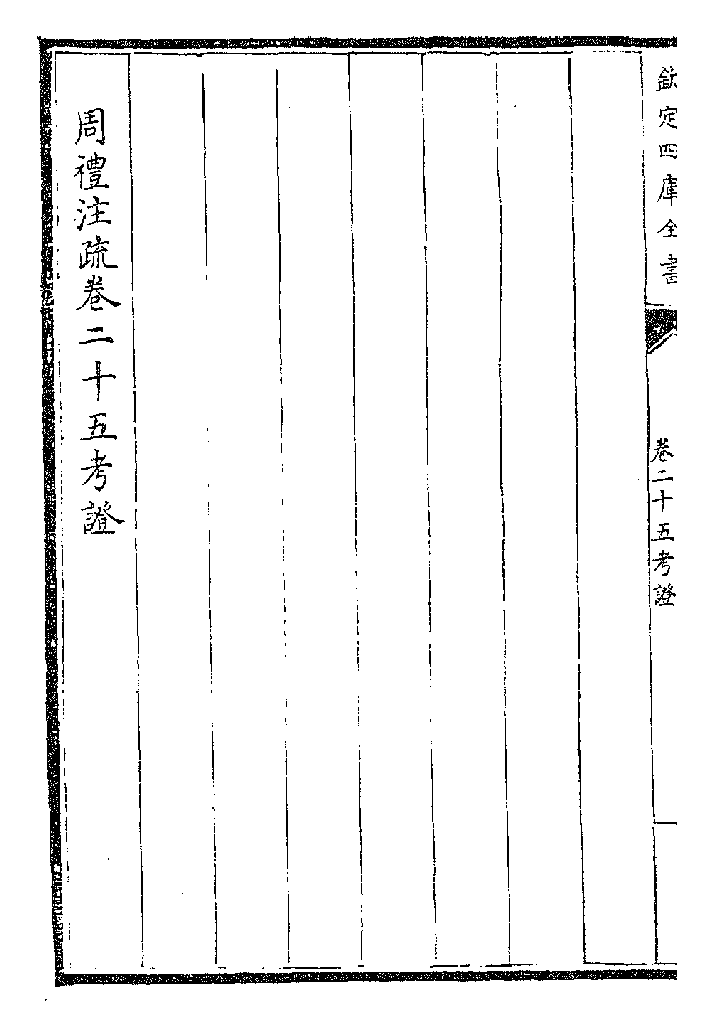 欽定四庫全書
卷二十五考證
周禮注疏卷二十五考證